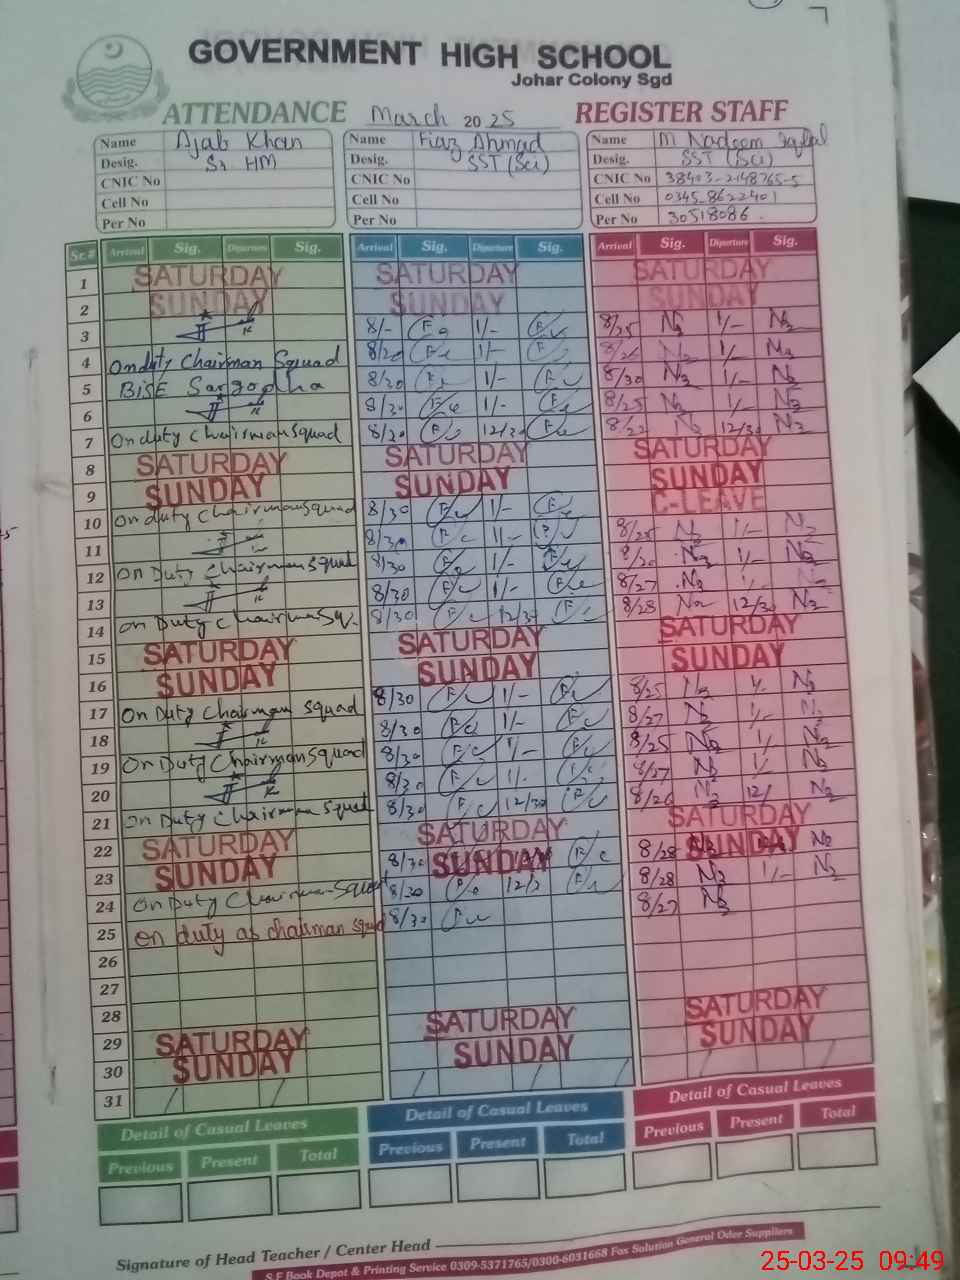 GOVERNMENT HIGH SCHOOL
Johar Colony Sgd
ATTENDANCE March 2025 REGISTER STAFF
Name Ajab Khan Name Fiaz Ahmad Name M Nadeem Iqbal
Desig. Sr HM Desig. SST (Sci) Desig. SST (Sci)
CNIC No CNIC No CNIC No 38403-2148765-5
Cell No Cell No Cell No 0345-8622401
Per No Per No Per No 30518086
Sr.# Arrival Sig. Diparture Sig. Arrival Sig. Diparture Sig. Arrival Sig. Diparture Sig.
1 SATURDAY SATURDAY SATURDAY
2 SUNDAY SUNDAY SUNDAY
3 8/- 1/- 8/25 1/-
4 Onduty Chairman Squad 8/20 1/- 8/26 1/-
5 BISE Sargodha 8/30 1/- 8/30 1/-
6 8/30 1/- 8/25 1/-
7 On duty Chairman Squad 8/20 12/30 8/22 12/30
8 SATURDAY SATURDAY SATURDAY
9 SUNDAY SUNDAY SUNDAY
10 On duty Chairman Squad 8/30 1/- C-LEAVE
11 8/30 1/- 8/25 1/-
12 On Duty Chairman Squad 8/30 1/- 8/20 1/-
13 8/30 1/- 8/27
14 On Duty Chairman Sq. 8/30 12/30 8/28 12/30
15 SATURDAY SATURDAY SATURDAY
16 SUNDAY SUNDAY SUNDAY
17 On Duty Chairman Squad 8/30 1/- 8/25
18 8/30 1/- 8/27 1/-
19 On Duty Chairman Squad 8/30 1/- 8/25 1/-
20 8/30 1/- 8/27
21 On Duty Chairman Squad 8/30 12/30 8/26 12/
22 SATURDAY SATURDAY SATURDAY
23 SUNDAY 8/30 SUNDAY 8/28 SUNDAY
24 On Duty Chairman Squad 8/30 8/28 1/-
25 On duty as chairman squad 8/30 8/27
26
27
28
29 SATURDAY SATURDAY SATURDAY
30 SUNDAY SUNDAY SUNDAY
31
Detail of Casual Leaves Detail of Casual Leaves Detail of Casual Leaves
Previous Present Total Previous Present Total Previous Present Total
Signature of Head Teacher / Center Head
S.F Book Depot & Printing Service 0309-5371765/0300-6031668 Fax Solution General Oder Suppliers
25-03-25 09:49